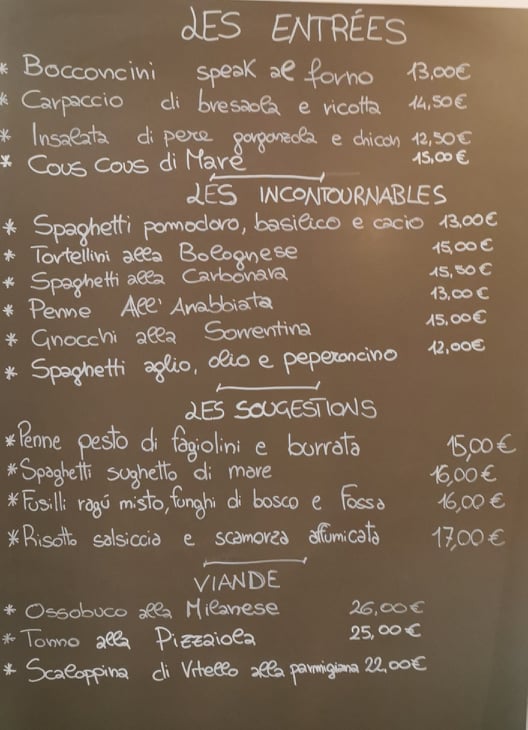 LES ENTRÉES
* Bocconcini speak al forno 13,00€
* Carpaccio di bresaola e ricotta 14,50€
* Insalata di pere gorgonzola e chicon 12,50€
* Cous Cous di Mare 15,00€
LES INCONTOURNABLES
* Spaghetti pomodoro, basilico e cacio 13,00€
* Tortellini alla Bolognese 15,00€
* Spaghetti alla Carbonara 15,50€
* Penne All' Arabbiata 13,00€
* Gnocchi alla Sorrentina 15,00€
* Spaghetti aglio, olio e peperoncino 12,00€
LES SOUGESTIONS
* Penne pesto di fagiolini e burrata 15,00€
* Spaghetti sughetto di mare 16,00€
* Fusilli ragú misto, funghi di bosco e Fossa 16,00€
* Risotto salsiccia e scamorza affumicata 17,00€
VIANDE
* Ossobuco alla Milanese 26,00€
* Tonno alla Pizzaiola 25,00€
* Scaloppina di Vitello alla parmigiana 22,00€